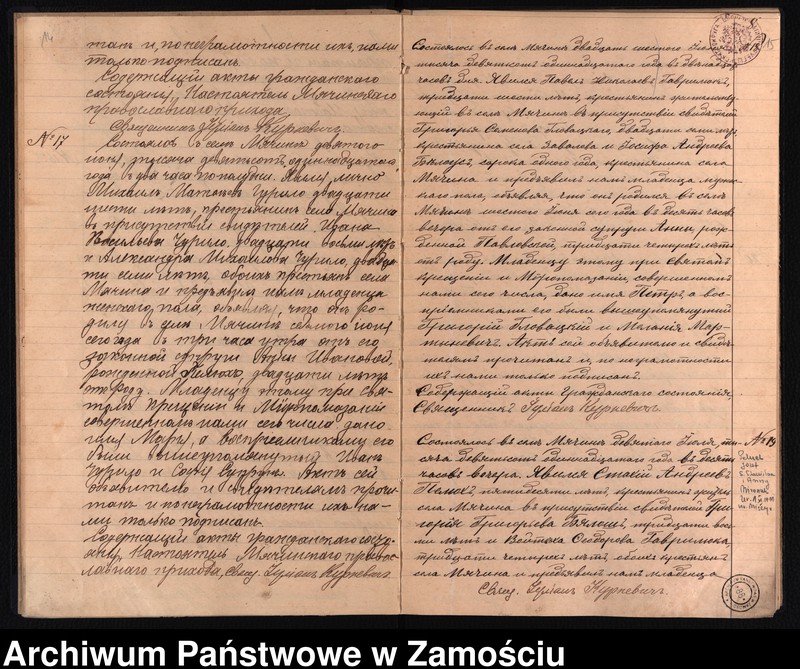 14
танъ и, по неграмотности ихъ, нами
только подписанъ.
Содержащій акты гражданскаго
состоянія, Настоятель Мячинскаго
православнаго прихода
Священникъ Куркевичъ.
№ 17
Состоялось въ селѣ Мячинѣ девятого
іюня, тысяча девятьсотъ одиннадцатаго
года въ два часа пополудни. Явился лично
Михаилъ Чурило двадцати
шести лѣтъ, крестьянинъ села Мячина
въ присутствіи свидѣтелей, Ивана
Васильева Чурило, двадцати восьми лѣтъ
и Александра Михайлова Чурило, двадца-
ти семи лѣтъ, обоихъ крестьянъ села
Мячина и предъявилъ намъ младенца
женскаго пола, объявляя, что оно ро-
дилось въ селѣ Мячинѣ седьмого іюня
сего года въ три часа утра отъ его
законной супруги Анны Ивановой,
рожденной двадцати лѣтъ
отъ роду. Младенцу этому при Свя-
томъ Крещеніи и Мѵропомазаніи
совершенномъ нами сего числа дано
имя а воспріемниками его
были вышеупомянутый Иванъ
Чурило и Актъ сей
объявителю и свидѣтелямъ прочи-
танъ и по неграмотности ихъ на-
ми только подписанъ.
Содержащій акты гражданскаго состо-
янія, Настоятель Мячинскаго правос-
лавнаго прихода, Свящ. Куркевичъ
15
Состоялось въ селѣ Мячинѣ двадцать шестого Іюня
тысяча девятьсотъ одиннадцатаго года въ двѣнадцать
часовъ дня. Явился Павелъ Николаевъ Гаврилюкъ,
тридцати шести лѣтъ, крестьянинъ жительству-
ющій въ селѣ Мячинѣ въ присутствіи свидѣтелей
Григорія Семенова Гловацкаго, двадцати семи лѣтъ,
крестьянина села Завалова и Іосифа Андреева
сорока одного года, крестьянина села
Мячина и предъявилъ намъ младенца муж-
скаго пола, объявляя, что онъ родился въ селѣ
Мячинѣ шестого Іюня сего года въ десять часовъ
вечера отъ его законной супруги Анны, рож-
денной Павловской, тридцати четырехъ лѣтъ
отъ роду. Младенцу этому при Святомъ
крещеніи и Мѵропомазаніи, совершенномъ
нами сего числа, дано имя Петръ, а вос-
пріемниками его были вышеупомянутый
Григорій Гловацкій и Меланія Мар-
тыневичъ. Актъ сей объявителю и свидѣ-
телямъ прочитанъ и, по неграмотности
ихъ нами только подписанъ.
Содержащій акты Гражданскаго состоянія,
Священникъ Куркевичъ.
№ 19
Состоялось въ селѣ Мячинѣ девятаго Іюля, ты-
сяча девятьсотъ одиннадцатаго года въ десять
часовъ вечера. Явился Андреевъ
пятидесяти лѣтъ, крестьянинъ
села Мячина въ присутствіи свидѣтелей Гри-
горія Григорьева тридцати вось-
ми лѣтъ и Войтеха Сидорова Гаврилюка
тридцати четырехъ лѣтъ, обоихъ крестьянъ
села Мячина и предъявилъ намъ младенца
Свящ. Куркевичъ.
Archiwum Państwowe w Zamościu